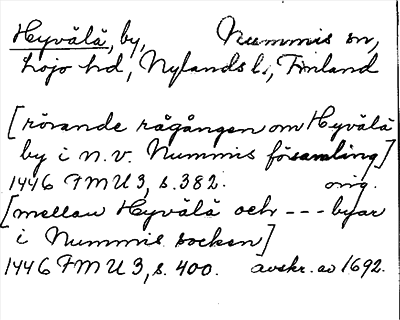 Hyvälä, by, Nummis sn,
Lojo hd, Nylands l., Finland
[rörande rågången om Hyvälä
by i n.v. Nummis församling]
1446 FMU 3, s. 382. orig.
[mellan Hyvälä och --- byar
i Nummis socken]
1446 FMU 3, s. 400. avskr. av 1692.